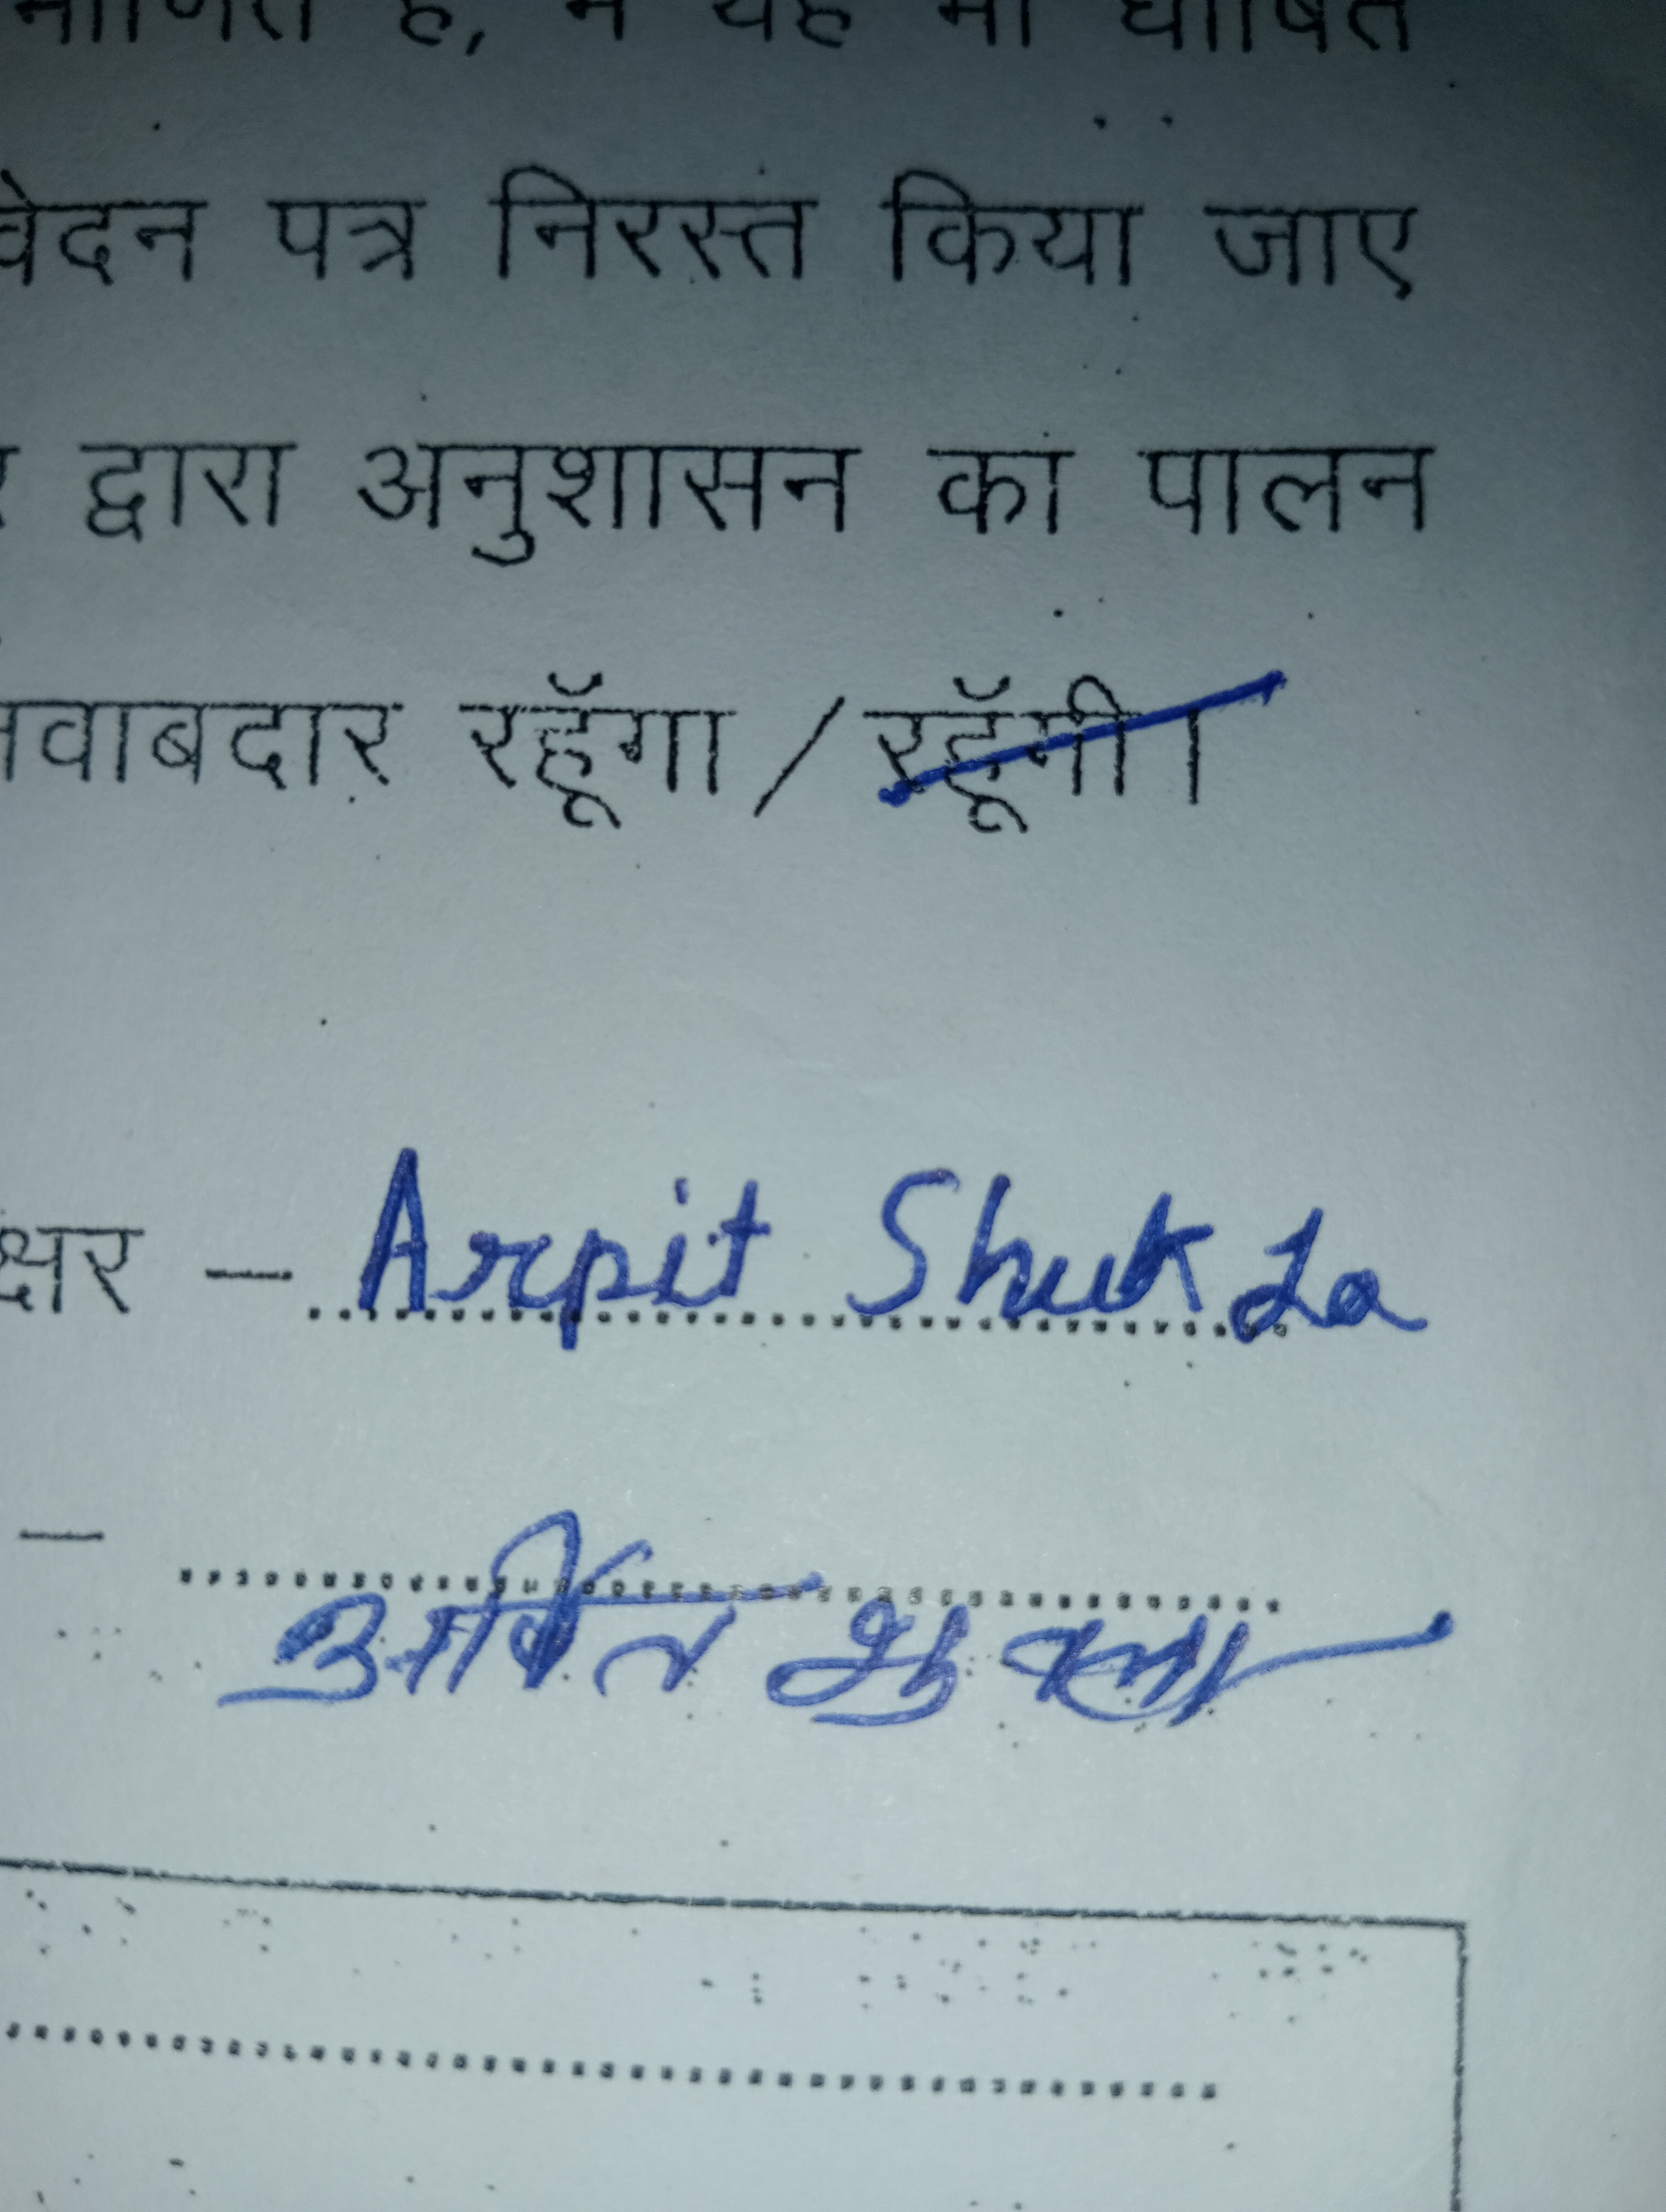 है, यह घोषित
वेदन पत्र निरस्त किया जाए
द्वारा अनुशासन का पालन
जवाबदार रहूँगा / रहूँगी।
क्षर – Arpit Shukla
–
अर्पित शुक्ला